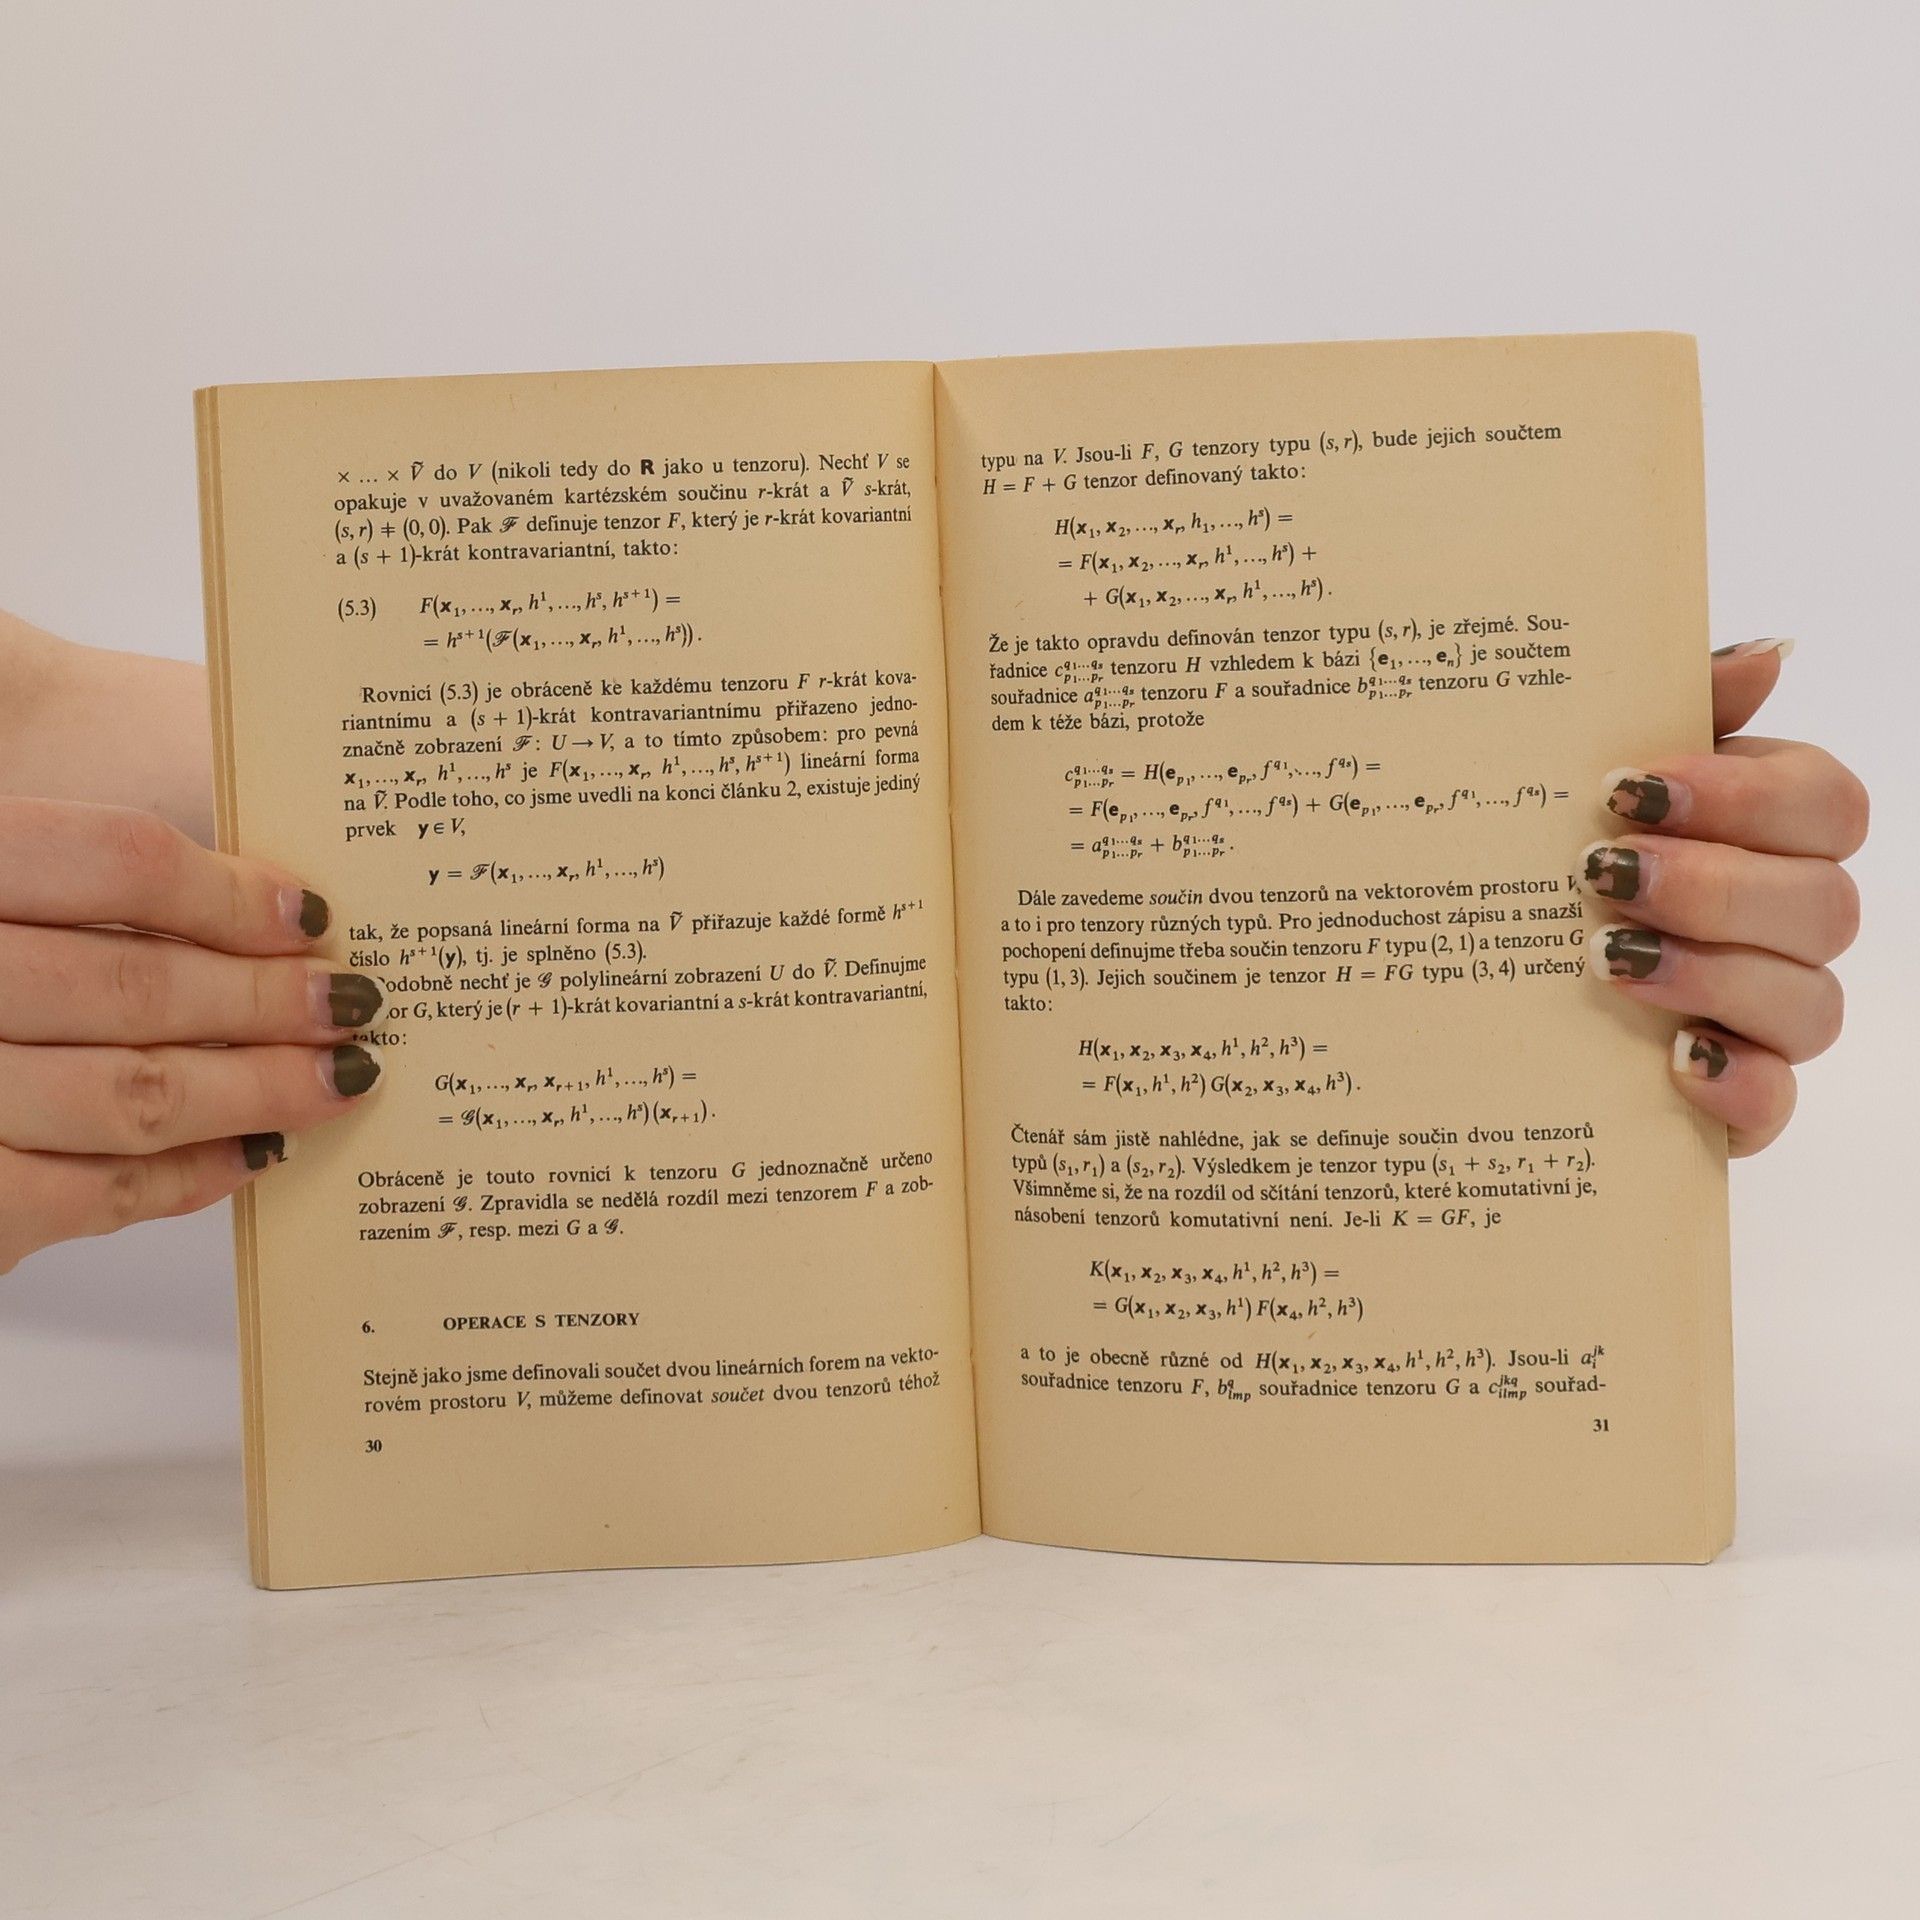 × ... × Ṽ do V (nikoli tedy do R jako u tenzoru). Nechť V se
opakuje v uvažovaném kartézském součinu r-krát a Ṽ s-krát,
(s, r) ≠ (0, 0). Pak ℱ definuje tenzor F, který je r-krát kovariantní
a (s + 1)-krát kontravariantní, takto:
(5.3) F(x₁, ..., xᵣ, h¹, ..., hˢ, hˢ⁺¹) =
= hˢ⁺¹(ℱ(x₁, ..., xᵣ, h¹, ..., hˢ)).
Rovnicí (5.3) je obráceně ke každému tenzoru F r-krát kova-
riantnímu a (s + 1)-krát kontravariantnímu přiřazeno jedno-
značně zobrazení ℱ: U → V, a to tímto způsobem: pro pevná
x₁, ..., xᵣ, h¹, ..., hˢ je F(x₁, ..., xᵣ, h¹, ..., hˢ, hˢ⁺¹) lineární forma
na Ṽ. Podle toho, co jsme uvedli na konci článku 2, existuje jediný
prvek y ∈ V,
y = ℱ(x₁, ..., xᵣ, h¹, ..., hˢ)
tak, že popsaná lineární forma na Ṽ přiřazuje každé formě hˢ⁺¹
číslo hˢ⁺¹(y), tj. je splněno (5.3).
odobně nechť je 𝒢 polylineární zobrazení U do Ṽ. Definujme
or G, který je (r + 1)-krát kovariantní a s-krát kontravariantní,
takto:
G(x₁, ..., xᵣ, xᵣ₊₁, h¹, ..., hˢ) =
= 𝒢(x₁, ..., xᵣ, h¹, ..., hˢ)(xᵣ₊₁).
Obráceně je touto rovnicí k tenzoru G jednoznačně určeno
zobrazení 𝒢. Zpravidla se nedělá rozdíl mezi tenzorem F a zob-
razením ℱ, resp. mezi G a 𝒢.
6. OPERACE S TENZORY
Stejně jako jsme definovali součet dvou lineárních forem na vekto-
rovém prostoru V, můžeme definovat součet dvou tenzorů téhož
30
typu na V. Jsou-li F, G tenzory typu (s, r), bude jejich součtem
H = F + G tenzor definovaný takto:
H(x₁, x₂, ..., xᵣ, h₁, ..., hˢ) =
= F(x₁, x₂, ..., xᵣ, h¹, ..., hˢ) +
+ G(x₁, x₂, ..., xᵣ, h¹, ..., hˢ).
Že je takto opravdu definován tenzor typu (s, r), je zřejmé. Sou-
řadnice c_{p₁...pᵣ}^{q₁...qₛ} tenzoru H vzhledem k bázi {e₁, ..., eₙ} je součtem
souřadnice a_{p₁...pᵣ}^{q₁...qₛ} tenzoru F a souřadnice b_{p₁...pᵣ}^{q₁...qₛ} tenzoru G vzhle-
dem k téže bázi, protože
c_{p₁...pᵣ}^{q₁...qₛ} = H(e_{p₁}, ..., e_{pᵣ}, f^{q₁}, ..., f^{qₛ}) =
= F(e_{p₁}, ..., e_{pᵣ}, f^{q₁}, ..., f^{qₛ}) + G(e_{p₁}, ..., e_{pᵣ}, f^{q₁}, ..., f^{qₛ}) =
= a_{p₁...pᵣ}^{q₁...qₛ} + b_{p₁...pᵣ}^{q₁...qₛ}.
Dále zavedeme součin dvou tenzorů na vektorovém prostoru V,
a to i pro tenzory různých typů. Pro jednoduchost zápisu a snazší
pochopení definujme třeba součin tenzoru F typu (2, 1) a tenzoru G
typu (1, 3). Jejich součinem je tenzor H = FG typu (3, 4) určený
takto:
H(x₁, x₂, x₃, x₄, h¹, h², h³) =
= F(x₁, h¹, h²) G(x₂, x₃, x₄, h³).
Čtenář sám jistě nahlédne, jak se definuje součin dvou tenzorů
typů (s₁, r₁) a (s₂, r₂). Výsledkem je tenzor typu (s₁ + s₂, r₁ + r₂).
Všimněme si, že na rozdíl od sčítání tenzorů, které komutativní je,
násobení tenzorů komutativní není. Je-li K = GF, je
K(x₁, x₂, x₃, x₄, h¹, h², h³) =
= G(x₁, x₂, x₃, h¹) F(x₄, h², h³)
a to je obecně různé od H(x₁, x₂, x₃, x₄, h¹, h², h³). Jsou-li a_i^{jk}
souřadnice tenzoru F, b_{lmp}^{q} souřadnice tenzoru G a c_{ilmp}^{jkq} souřad-
31